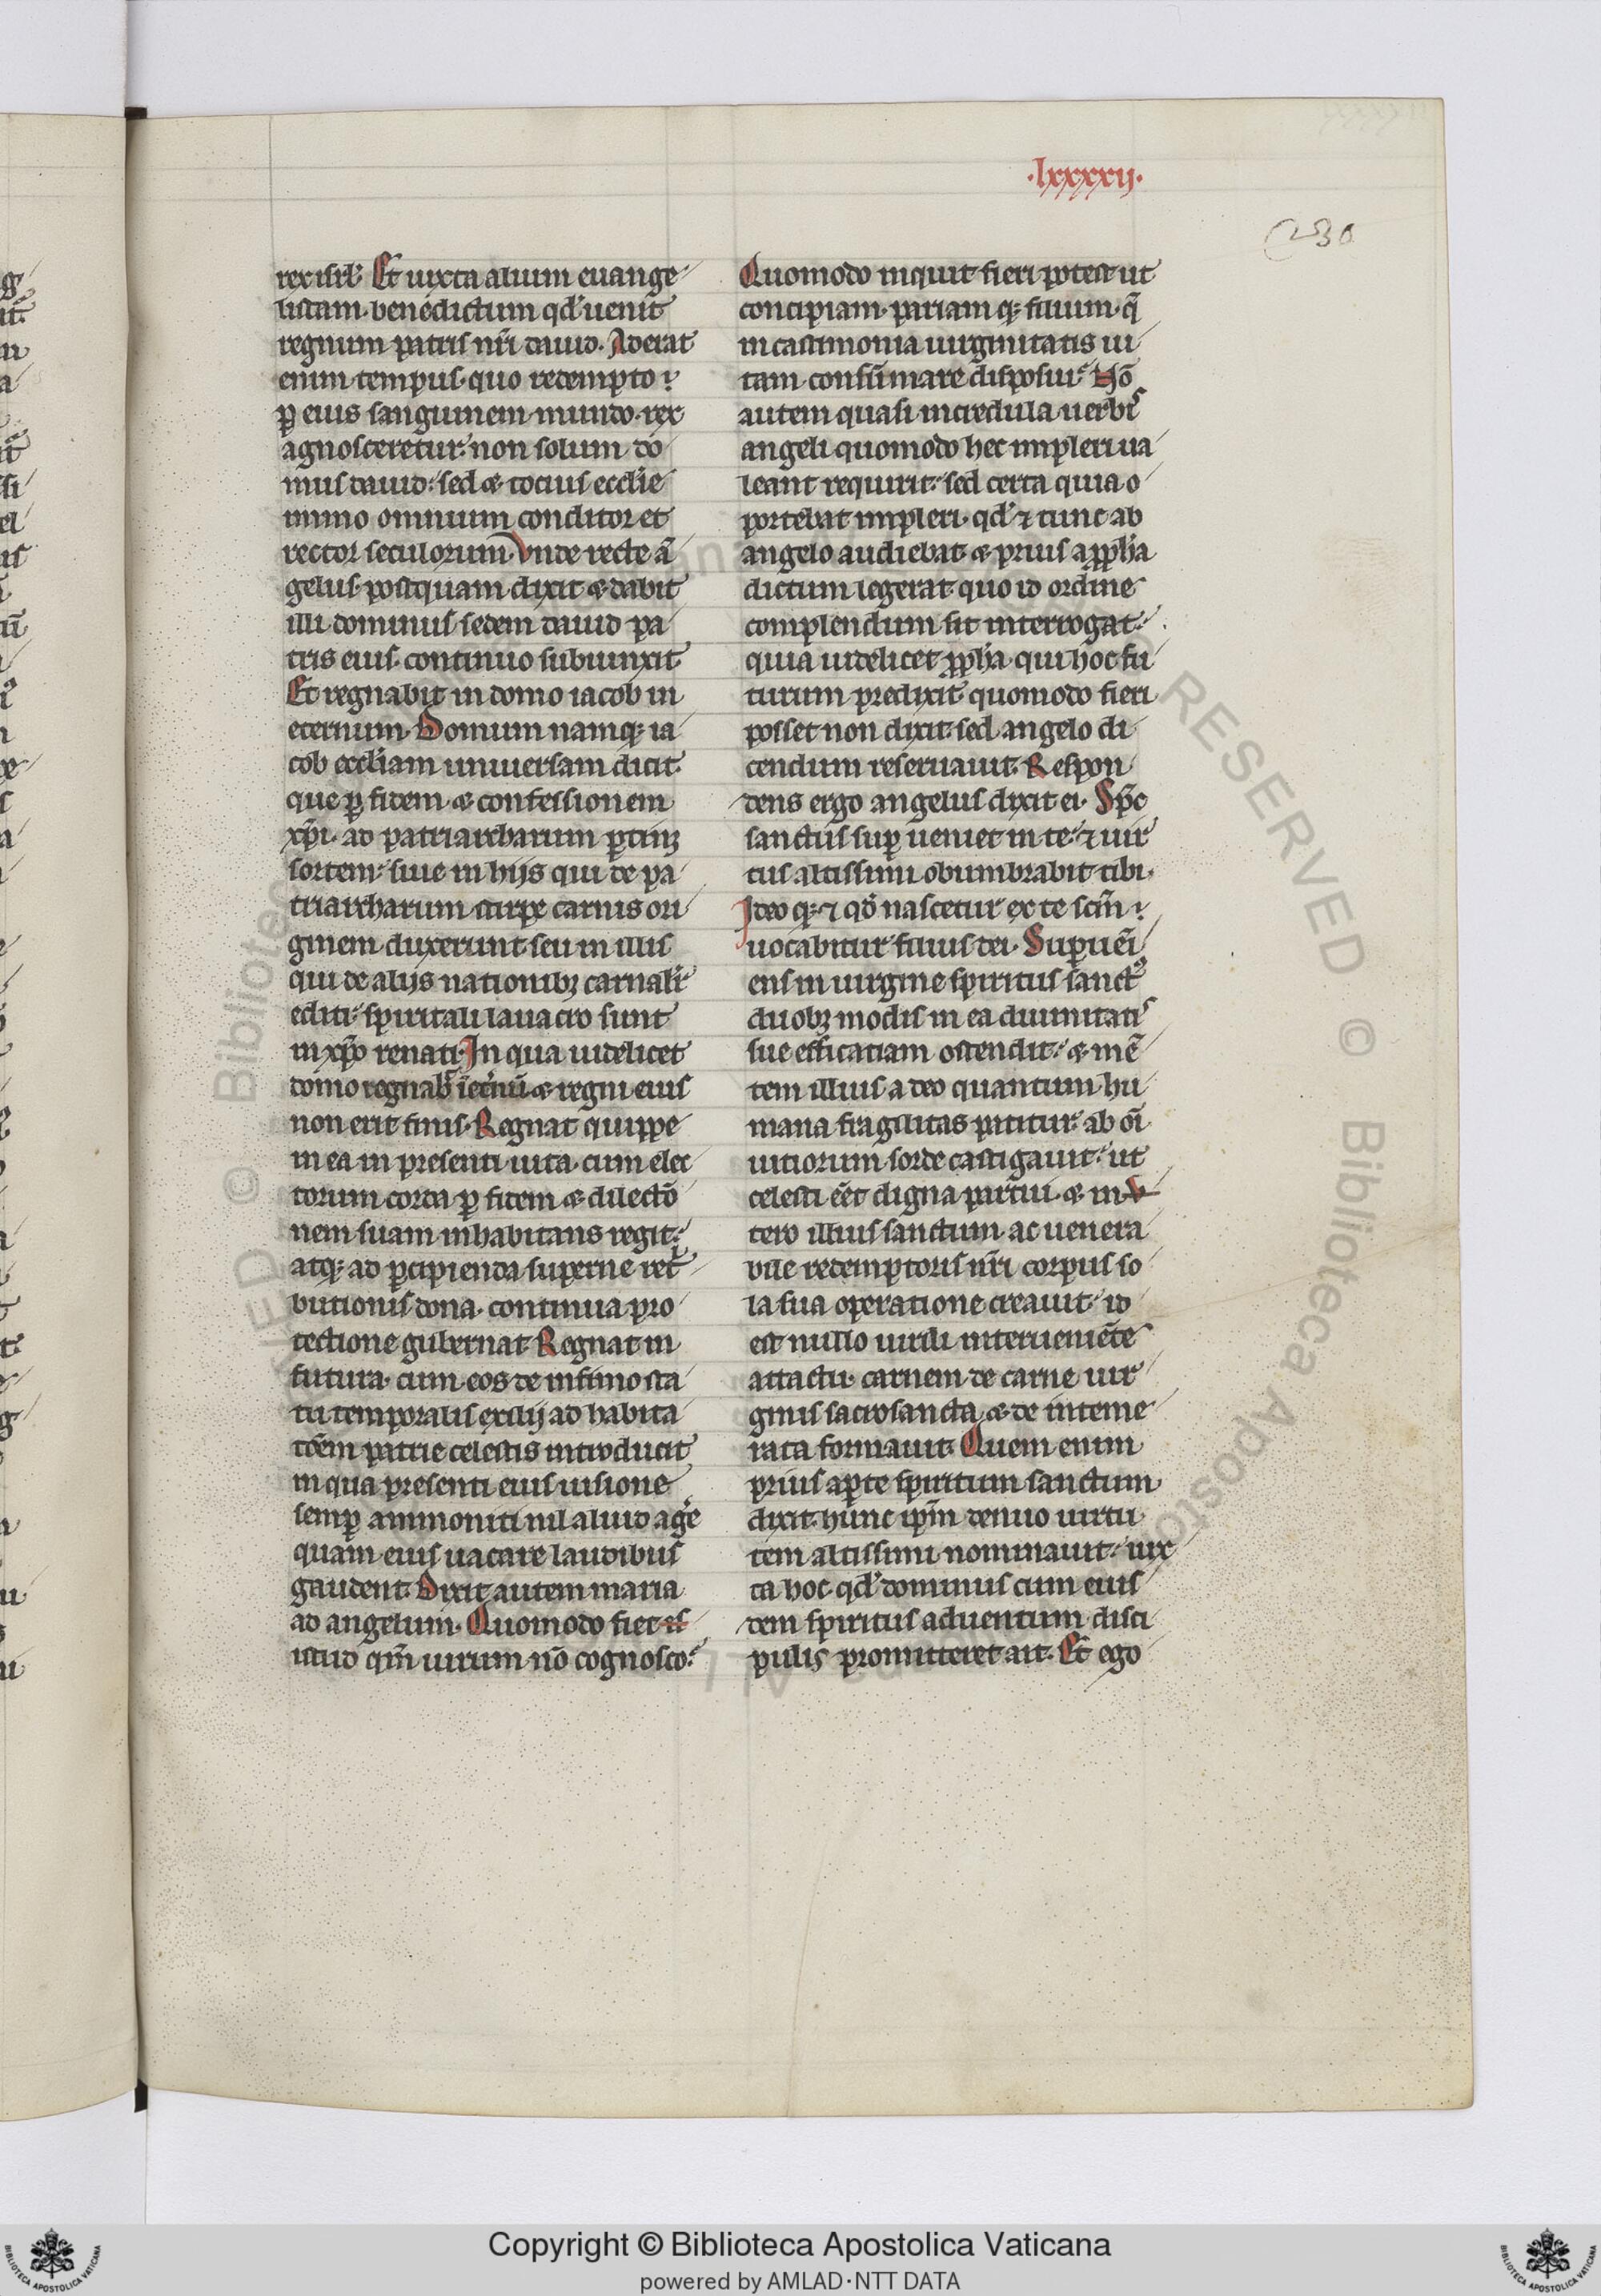 ·lxxxxij·
230
rex isrl'. Et iuxta alium euange
listam. benedictum qd' uenit
regnum patris nr̄i dauid. Aderat
enim tempus quo redempto
ꝑ eius sanguinem mundo. rex
agnosceretur. non solum do
mus dauid. sed & tocius eccl'ie
immo omnium conditor et
rector seculorum. Vnde recte ā
gelus postquam dixit & dabit
illi dominus sedem dauid pa
tris eius. continuo subiunxit.
Et regnabit in domo iacob in
eternum. Domum namq; ia
cob eccl'iam uniuersam dicit.
que ꝑ fidem & confessionem
xp̄i. ad patriarcharum ꝑtinꝫ
sortem. siue in hijs qui de pa
triarcharum stirpe carnis ori
ginem duxerunt seu in illis
qui de alijs nationibꝫ carnalr̄
editi. spiritali lauacro sunt
in xp̄o renati. In qua uidelicet
domo regnab̄ īet'nū & regni eius
non erit finis. Regnat quippe
in ea in presenti uita. cum elec
torum corda ꝑ fidem & dilectō
nem suam inhabitans regit.
atq; ad ꝑcipienda superne ret'
butionis dona. continua pro
tectione gubernat. Regnat in
futura. cum eos de infimo sta
tu temporalis exilij ad habita
tōem patrie celestis introducit
in qua presenti eius uisione
semꝑ ammoniti nil aliud age
quam eius uacare laudibus
gaudent. Dixit autem maria
ad angelum. Quomodo fiet is
istud qm̄ uirum nō cognosco.
Quomodo inquit fieri potest ut
concipiam. pariam q; filium. q̄
in castimonia uirginitatis ui
tam consūmare disposui. Nō
autem quasi incredula uerbis
angeli quomodo hec impleri ua
leant requirit. sed certa quia o
portebat impleri. qd' ⁊ tunc ab
angelo audiebat & prius a ꝓph'a
dictum legerat. quo id ordine
complendum sit interrogat.
quia uidelicet ꝓph'a. qui hoc fu
turum predixit. quomodo fieri
posset non dixit. sed angelo di
cendum reseruauit. Respon
dens ergo angelus dixit ei. Sp̄c
sanctus suꝑ ueniet in te. ⁊ uir
tus altissimi obumbrabit tibi.
Ideo q; ⁊ qd̄ nascetur ex te scm̄
uocabitur filius dei. Suꝑueī
ens in uirgine spiritus sanctꝰ
duobꝫ modis in ea diuinitatis
sue efficatiam ostendit. & mē
tem illius adeo quantum hu
mana fragilitas patitur. ab oī
uitiorum sorde castigauit. ut
celesti eēt digna partui. & in v
tero illius sanctum. ac uenera
bile redemptoris nr̄i corpus so
la sua operatione creauit. id
est nullo uirili interueniēte
attactu. carnem de carne uir
ginis sacrosancta. & de inteme
rata formauit. Quem enim
prius aꝑte spiritum sanctum
dixit. hunc ip̄m denuo uirtu
tem altissimi nominauit. iux
ta hoc qd' dominus cum eius
dem spiritus aduentum disci
pulis promitteret ait. Et ego
Copyright © Biblioteca Apostolica Vaticana
powered by AMLAD·NTT DATA